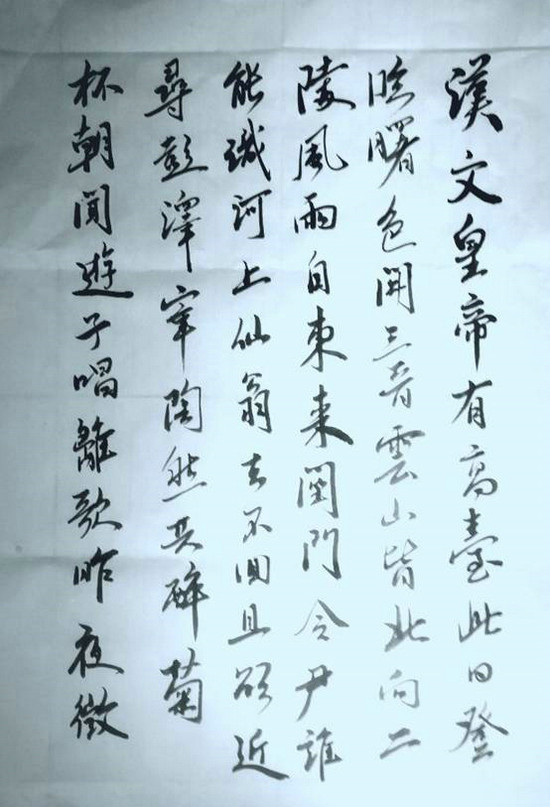 漢文皇帝有高臺此日登
臨曙色開三晉雲山皆北向二
陵風雨自東來關門令尹誰
能識河上仙翁去不回且欲近
尋彭澤宰陶然共醉菊
杯朝聞遊子唱離歌昨夜微